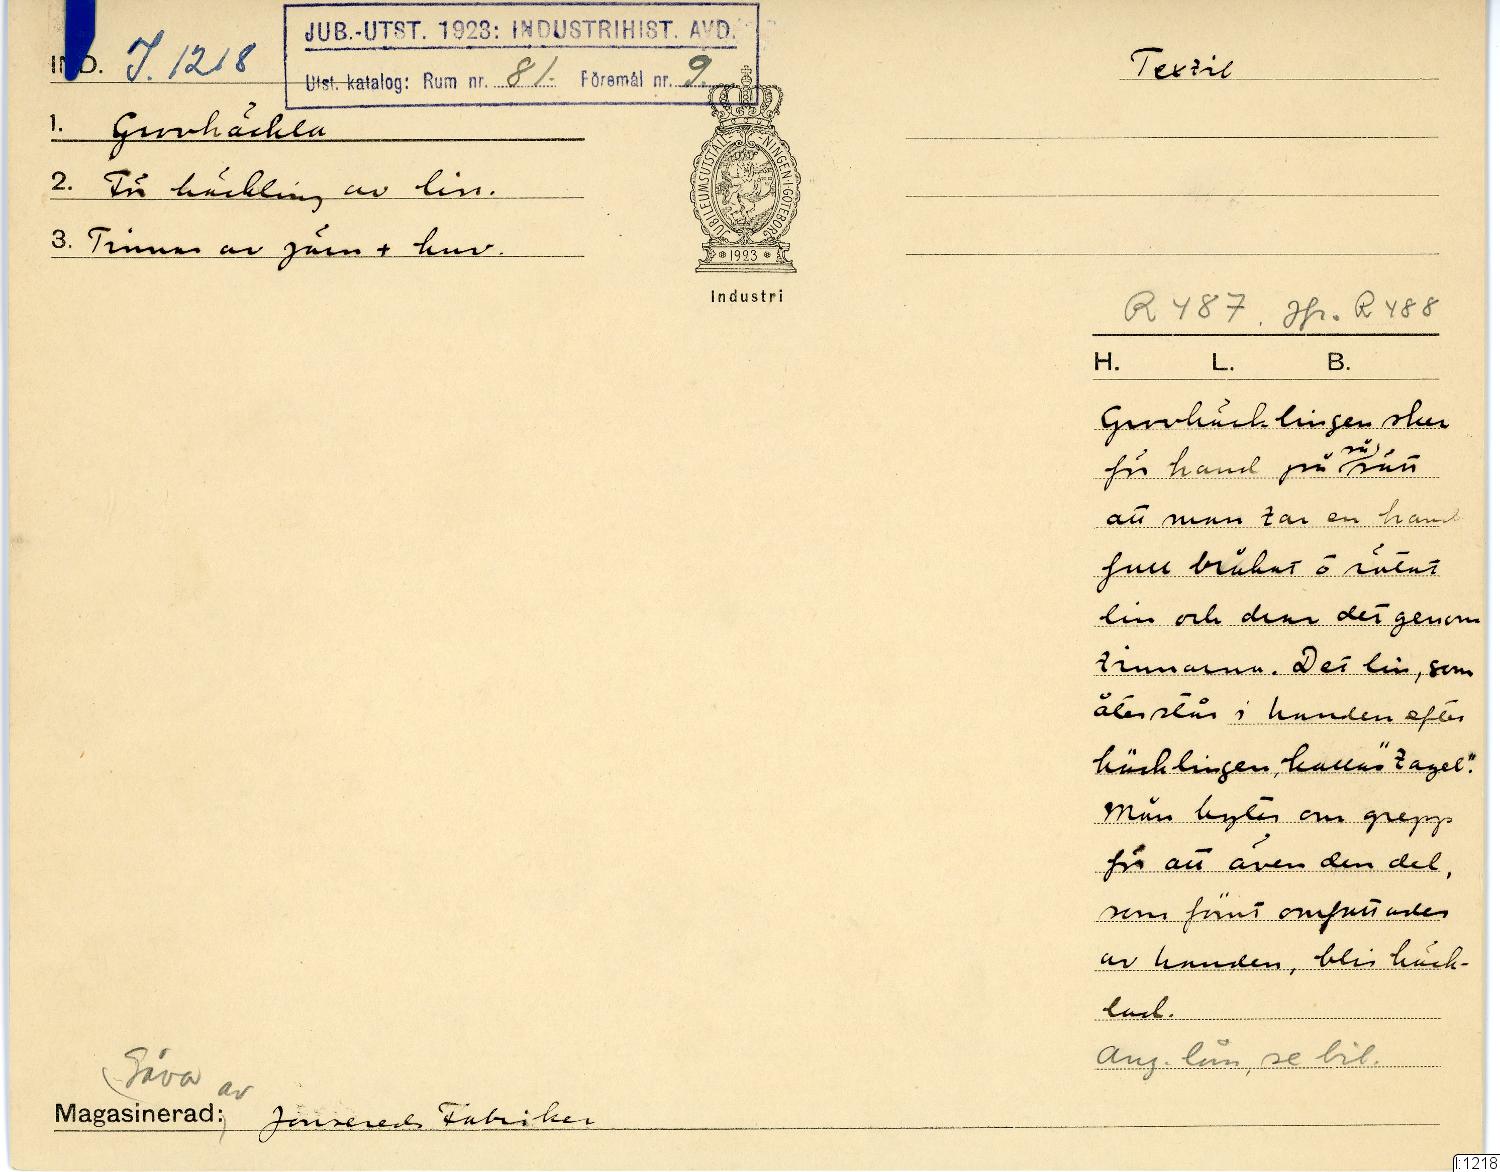 JUB.-UTST. 1923: INDUSTRIHIST. AVD.
IND. J. 1218
Utst. katalog: Rum nr. 81. Föremål nr. 9.
Textil
1. Grovhäckla
2. För häckling av lin.
3. Tinnar av järn +
JUBILEUMSUTSTÄLLNINGEN I GÖTEBORG
1923
Industri
R 487. Jfr. R 488
H. L. B.
Grovhäcklingen sker
för hand på så sätt
att man tar en hand
full bråkat o rötat
lin och drar det genom
tinnarna. Det lin, som
återstår i handen efter
häcklingen, kallas "tagel".
Man byter om grepp
för att även den del,
som förut omfattades
av handen, blir häck-
lad.
Ang. lån, se bil.
Gåva av
Magasinerad: Jonsereds Fabriker
I:1218